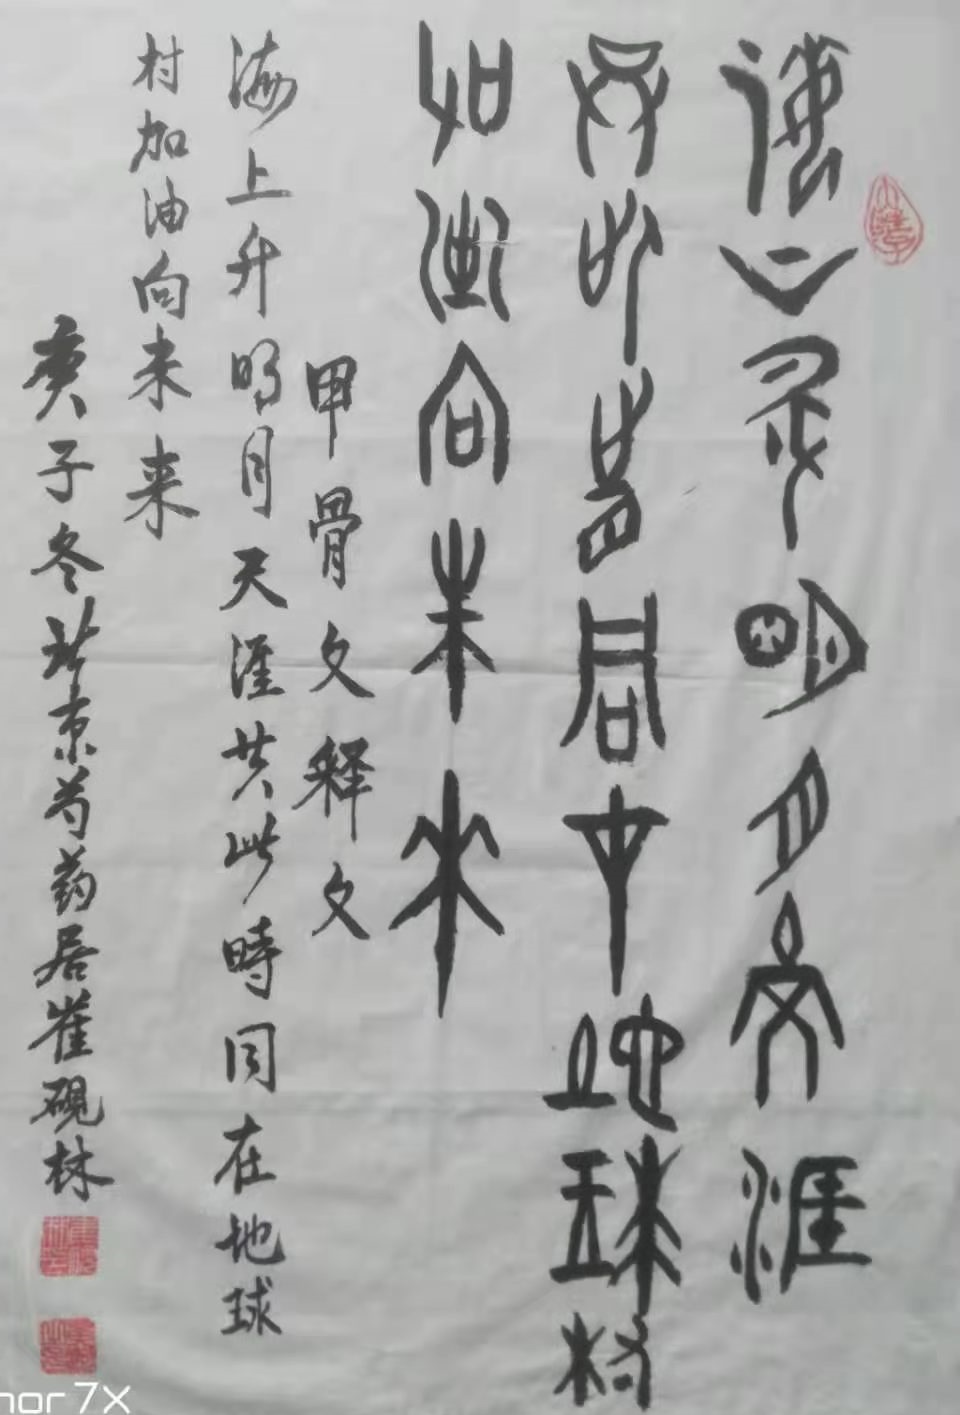 海上升明月天涯
共此時同在地球村
加油向未来
甲骨文释文
海上升明月天涯共此時同在地球
村加油向未来
庚子冬北京芍药居崔硯林
nor 7X